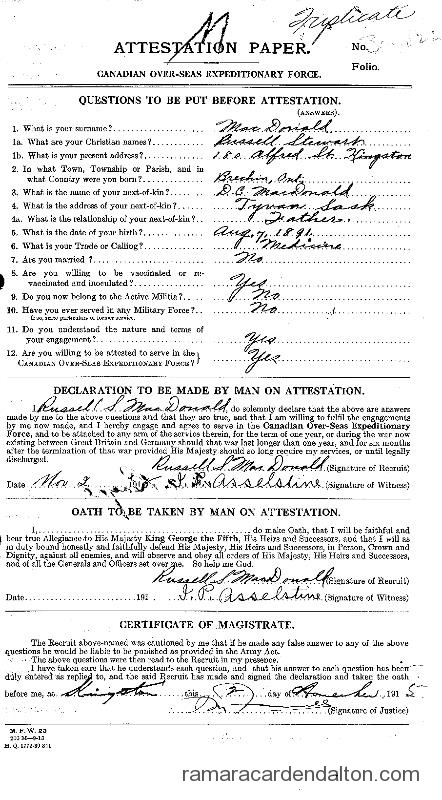 Triplicate
ATTESTATION PAPER.
No.
Folio.
CANADIAN OVER-SEAS EXPEDITIONARY FORCE.
QUESTIONS TO BE PUT BEFORE ATTESTATION.
(ANSWERS).
1. What is your surname? MacDonald
1a. What are your Christian names? Russell Stewart
1b. What is your present address? 180 Alfred St. Kingston
2. In what Town, Township or Parish, and in
what Country were you born? Brechin, Ont.
3. What is the name of your next-of-kin? D.C. MacDonald
4. What is the address of your next-of-kin? Tyvan Sask
4a. What is the relationship of your next-of-kin? Father.
5. What is the date of your birth? Aug. 7, 1891
6. What is your Trade or Calling? Medicine
7. Are you married? No
8. Are you willing to be vaccinated or re-
vaccinated and inoculated? Yes
9. Do you now belong to the Active Militia? No
10. Have you ever served in any Military Force? No
If so, state particulars of former service.
11. Do you understand the nature and terms of
your engagement? Yes
12. Are you willing to be attested to serve in the
CANADIAN OVER-SEAS EXPEDITIONARY FORCE? Yes
DECLARATION TO BE MADE BY MAN ON ATTESTATION.
I, Russell S. MacDonald, do solemnly declare that the above are answers
made by me to the above questions and that they are true, and that I am willing to fulfil the engagements
by me now made, and I hereby engage and agree to serve in the Canadian Over-Seas Expeditionary
Force, and to be attached to any arm of the service therein, for the term of one year, or during the war now
existing between Great Britain and Germany should that war last longer than one year, and for six months
after the termination of that war provided His Majesty should so long require my services, or until legally
discharged.
Russell S. MacDonald (Signature of Recruit)
Date Nov 2 1915 J. P. Asselstine (Signature of Witness)
OATH TO BE TAKEN BY MAN ON ATTESTATION.
I, do make Oath, that I will be faithful and
bear true Allegiance to His Majesty King George the Fifth, His Heirs and Successors, and that I will as
in duty bound honestly and faithfully defend His Majesty, His Heirs and Successors, in Person, Crown and
Dignity, against all enemies, and will observe and obey all orders of His Majesty, His Heirs and Successors,
and of all the Generals and Officers set over me. So help me God.
Russell S. MacDonald (Signature of Recruit)
Date 191 J. P. Asselstine (Signature of Witness)
CERTIFICATE OF MAGISTRATE.
The Recruit above-named was cautioned by me that if he made any false answer to any of the above
questions he would be liable to be punished as provided in the Army Act.
The above questions were then read to the Recruit in my presence.
I have taken care that he understands each question, and that his answer to each question has been
duly entered as replied to, and the said Recruit has made and signed the declaration and taken the oath
before me, at Kingston this day of November 1915
(Signature of Justice)
M. F. W. 23
H. Q. 1772-39 841
ramaracardendalton.com